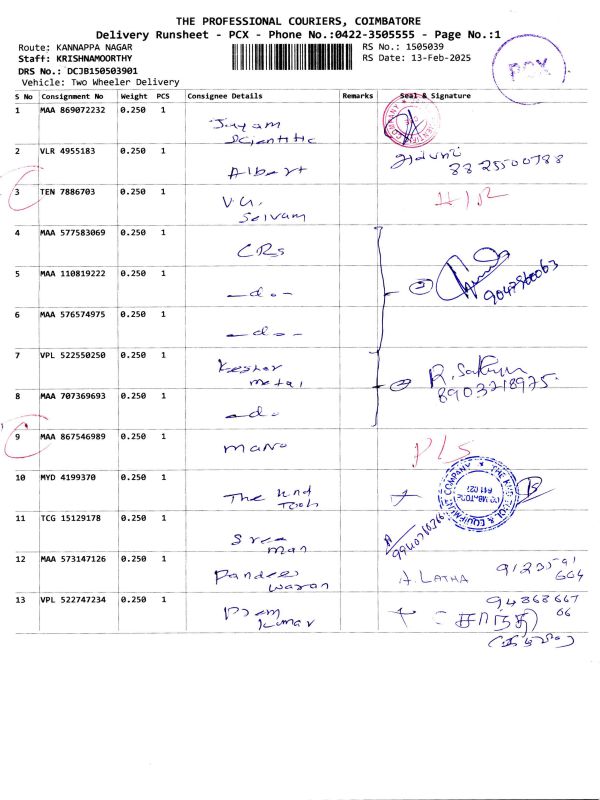 THE PROFESSIONAL COURIERS, COIMBATORE
Delivery Runsheet - PCX - Phone No.:0422-3505555 - Page No.:1
Route: KANNAPPA NAGAR
RS No.: 1505039
Staff: KRISHNAMOORTHY
RS Date: 13-Feb-2025
DRS No.: DCJB150503901
Vehicle: Two Wheeler Delivery
PCX
S No Consignment No Weight PCS Consignee Details Remarks Seal & Signature
1 MAA 869072232 0.250 1 Jayam Scientific
2 VLR 4955183 0.250 1 Albert 8825500788
3 TEN 7886703 0.250 1 V.G. Selvam
4 MAA 577583069 0.250 1 CRs
5 MAA 110819222 0.250 1 -do- 9047960063
6 MAA 576574975 0.250 1 -do-
7 VPL 522550250 0.250 1 Keshar metal R. 8903218975
8 MAA 707369693 0.250 1 -do-
9 MAA 867546989 0.250 1 mano P/S
10 MYD 4199370 0.250 1 The Tools
11 TCG 15129178 0.250 1 Sree man
12 MAA 573147126 0.250 1 Pandees waran A. LATHA
13 VPL 522747234 0.250 1 Prem kumar 94868667 66
சாந்தி